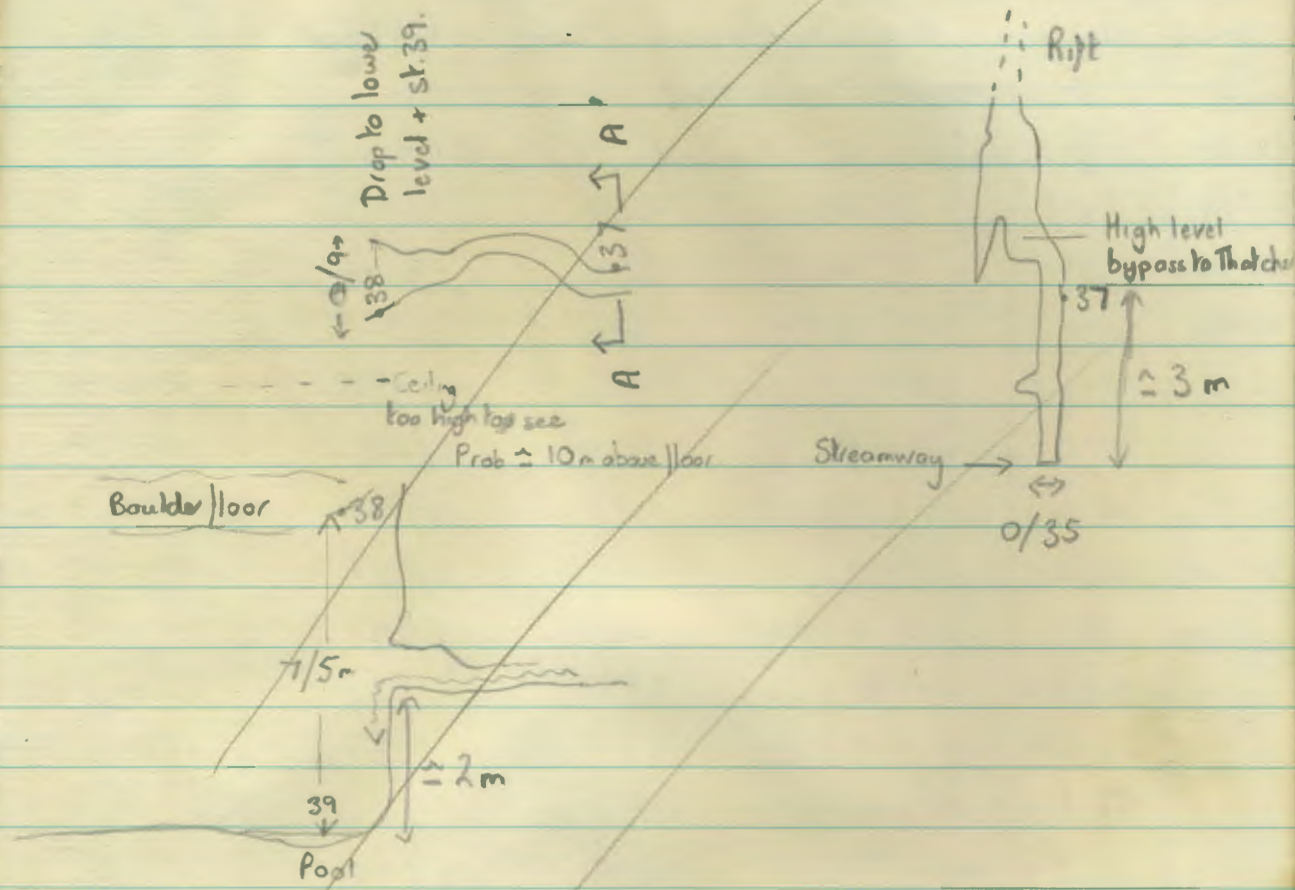 Drop to lower
level + st.39.
A
37
38
0/9
A
Ceiling
too high top see
Prob ≃ 10m above floor
Boulder floor
38
7/5m
≃ 2 m
39
Pool
Rift
High level
bypass to Thatche
37
≃ 3 m
Streamway
0/35